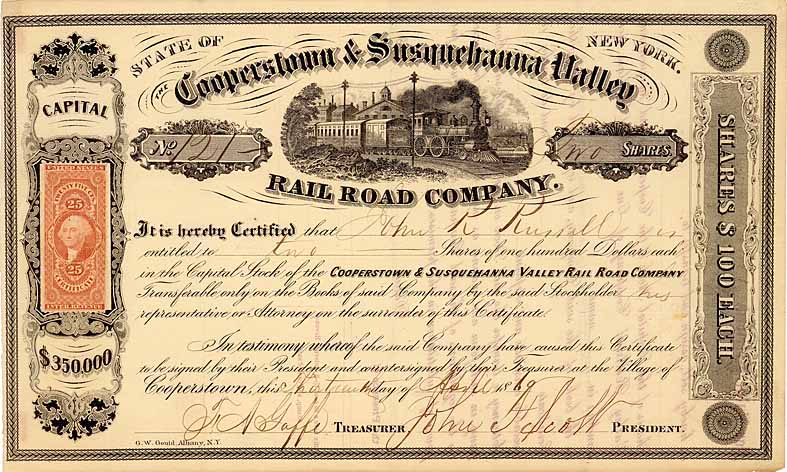 STATE OF NEW YORK.
THE Cooperstown & Susquehanna Valley
RAIL ROAD COMPANY.
CAPITAL
$350,000
UNITED STATES
TWENTY FIVE CENTS
25
25
CERTIFICATE
INTER. REVENUE
No 131
Two SHARES.
SHARES $100 EACH
It is hereby Certified that John R Russell is
entitled to two Shares of one hundred Dollars each
in the Capital Stock of the COOPERSTOWN & SUSQUEHANNA VALLEY RAIL ROAD COMPANY
Transferable only on the Books of said Company by the said Stockholder his
representative or Attorney on the surrender of this Certificate.
In testimony whereof the said Company have caused this Certificate
to be signed by their President and countersigned by their Treasurer, at the Village of
Cooperstown, this day of April 1869
TREASURER John Scott PRESIDENT.
G. W. Gould, Albany, N.Y.